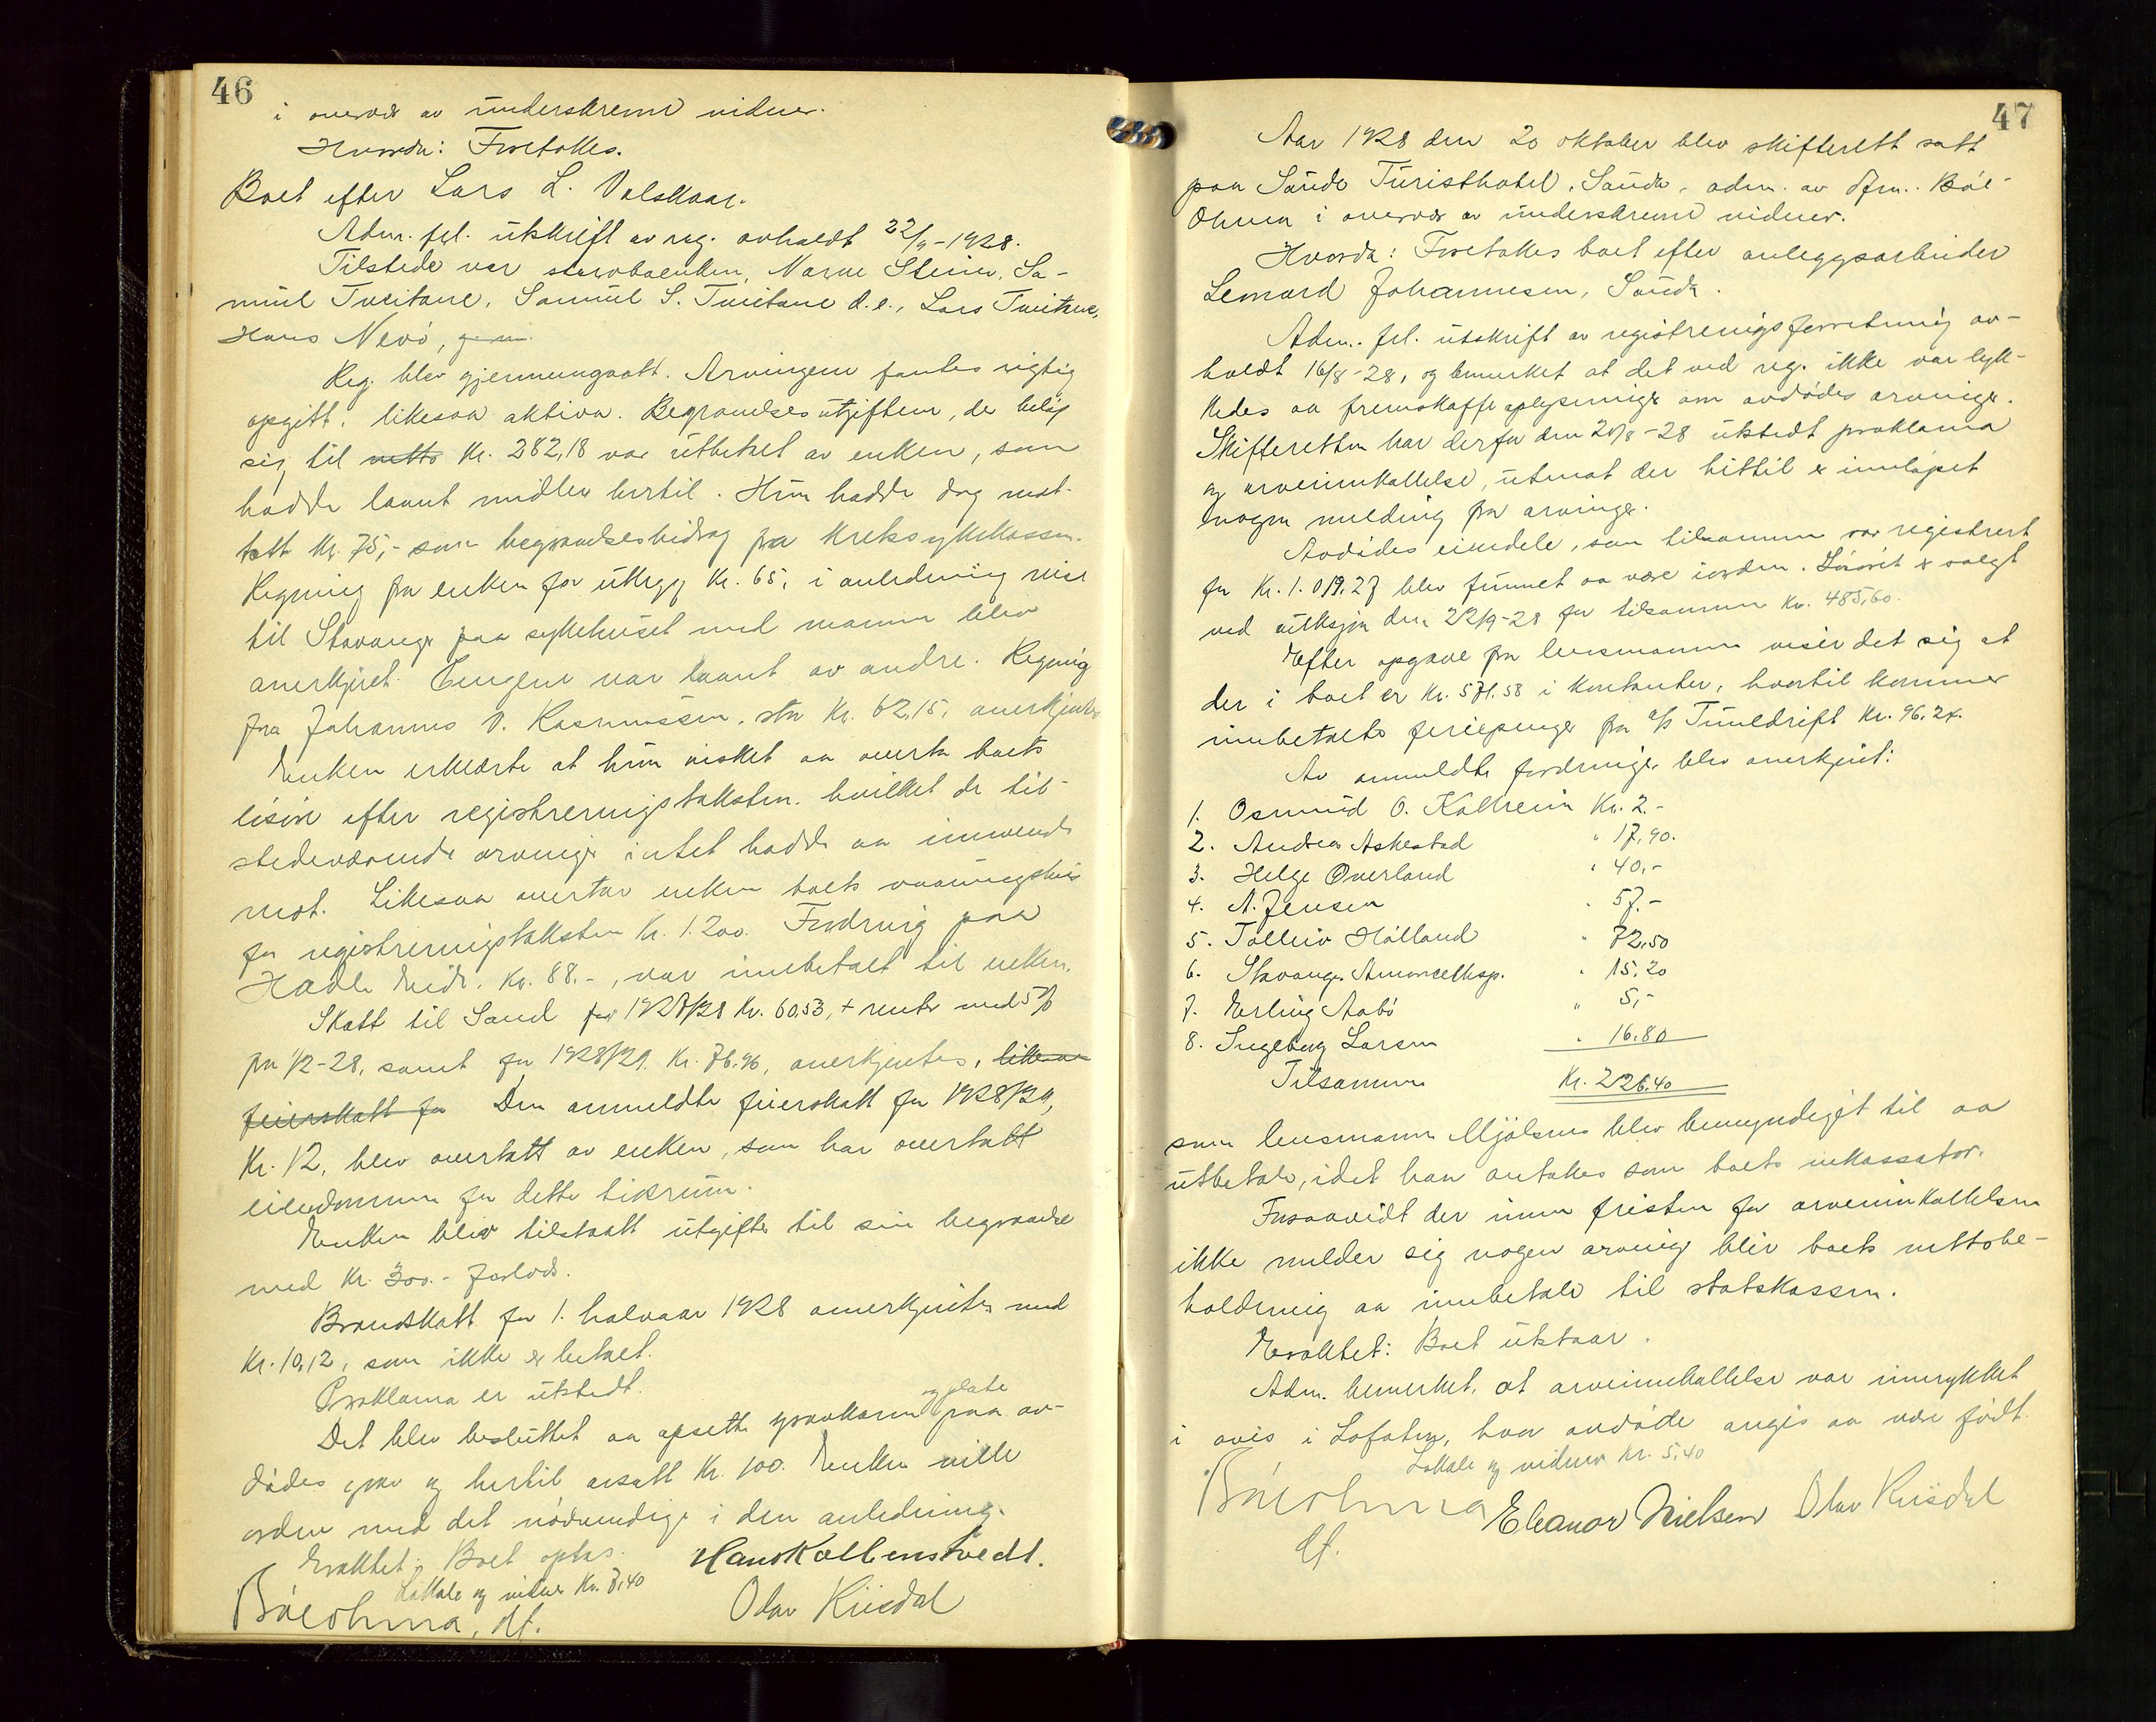 46
i overvær av underskrevne vidner.
Hvorda: Foretokes.
Boet efter Lars L. Valskaar.
Adm. frl. utskrift av reg. avholdt 22/9-1928.
Tilstede var stervboenken, Sa-
muel Tveitane, Samuel S. Tveitane d.e., Lars Tveitane,
Hans Nevø,
Reg. blev gjennemgaatt. Arvingene fantes rigtig
opgitt, likesaa aktiva. Begravelsesutgiftene, der beløp
sig til netto Kr. 282,18 var utbetalt av enken, som
hadde laant midler hertil. Hun hadde dog mot-
tatt Kr. 75,- som begravelsesbidrag fra Kretssykekassen.
Regning fra enken for utlegg Kr. 65, i anledning reise
til Stavanger paa sykehuset med mannen blev
anerkjent. Pengene var laant av andre. Regning
fra Johannes V. Rasmussen, stor Kr. 62,15, anerkjentes
Enken erklærte at hun ønsket aa overta boets
løsøre efter registreringstaksten, hvilket de til-
stedeværende arvinger intet hadde aa innvende
mot. Likesaa overtar enken boets vaaningshus
for registreringstaksten Kr. 1.200. Fordring paa
Hadle Eide, Kr. 88.-, var innbetalt til enken.
Skatt til Sand for 1927/28 Kr. 60.53, + renter med 5%
fra 1/2-28, samt for 1928/29. Kr. 76,96, anerkjentes, likesaa
feierskatt for Den anmeldte feierskatt for 1928/29,
Kr. 12, blev overtatt av enken, som har overtatt
eiendommen for dette tidsrum.
Enken blev tilstaatt utgifter til sin begravelse
med Kr. 300.- forlods.
Brandskatt for 1. halvaar 1928 anerkjentes med
Kr. 10,12, som ikke er betalt.
Proklama er utstedt.
og plate
Det blev besluttet aa opsette gravkarm paa av-
dødes grav og hertil avsatt Kr. 100. Enken vilde
ordne med det nødvendige i den anledning.
Eraktet: Boet optas.
Lokale og vidner Kr. 7,40
Hans Kolbenstvedt.
Bøe Ohma, df.
Olav Riisdal
47
Aar 1928 den 20 oktober blev skifterett satt
paa Sauda Turisthotel, Sauda, adm. av dfm. Bøe-
Ohma i overvær av underskrevne vidner.
Hvorda: Foretokes boet efter anleggsarbeider
Leonard Johannesen, Sauda.
Adm. frl. utskrift av registreringsforretning av-
holdt 16/8-28, og bemerket at det ved reg. ikke var lyk-
kedes aa fremskaffe oplysninger om avdødes arvinger.
Skifteretten har derfor den 20/8-28 utstedt proklama
og arveinnkallelse, uten at der hittil er innløpet
nogen melding fra arvinger.
Avdødes eiendele, som tilsammen var registrert
for Kr. 1.019,27 blev funnet aa være iorden. Løsøret er solgt
ved auksjon den 22/9-28 for tilsammen Kr. 485,60.
Efter opgave fra lensmannen viser det sig at
der i boet er Kr. 571.58 i kontanter, hvortil kommer
innbetalte feriepenger fra A/S Tuneldrift Kr. 96.24.
Av anmeldte fordringer blev anerkjent:
1. Osmund O. Koltveit Kr. 2.-
2. Andreas Askestad " 17,90.
3. Helge Overland " 40,-
4. A. Jensen " 57.-
5. Tolleiv Hålland " 72,50
6. Stavanger Amorcelksp. " 15,20
7. Erling Aabø " 5,-
8. Ingeborg Larsen " 16.80
Tilsammen Kr. 226.40
som lensmann Mjølsnes blev bemyndiget til aa
utbetale, idet han antakes som boets inkassator.
Forsaavidt der innen fristen for arveinnkallelsen
ikke melder sig nogen arving blir boets nettobe-
holdning aa innbetale til statskassen.
Eraktet: Boet utstaar.
Adm. bemerket, at arveinnkallelse var innrykket
i avis i Lofoten, hvor avdøde angis aa være født.
Lokale og vidner Kr. 5,40
Bøe Ohma Eleanor Nielsen Olav Riisdal
df.